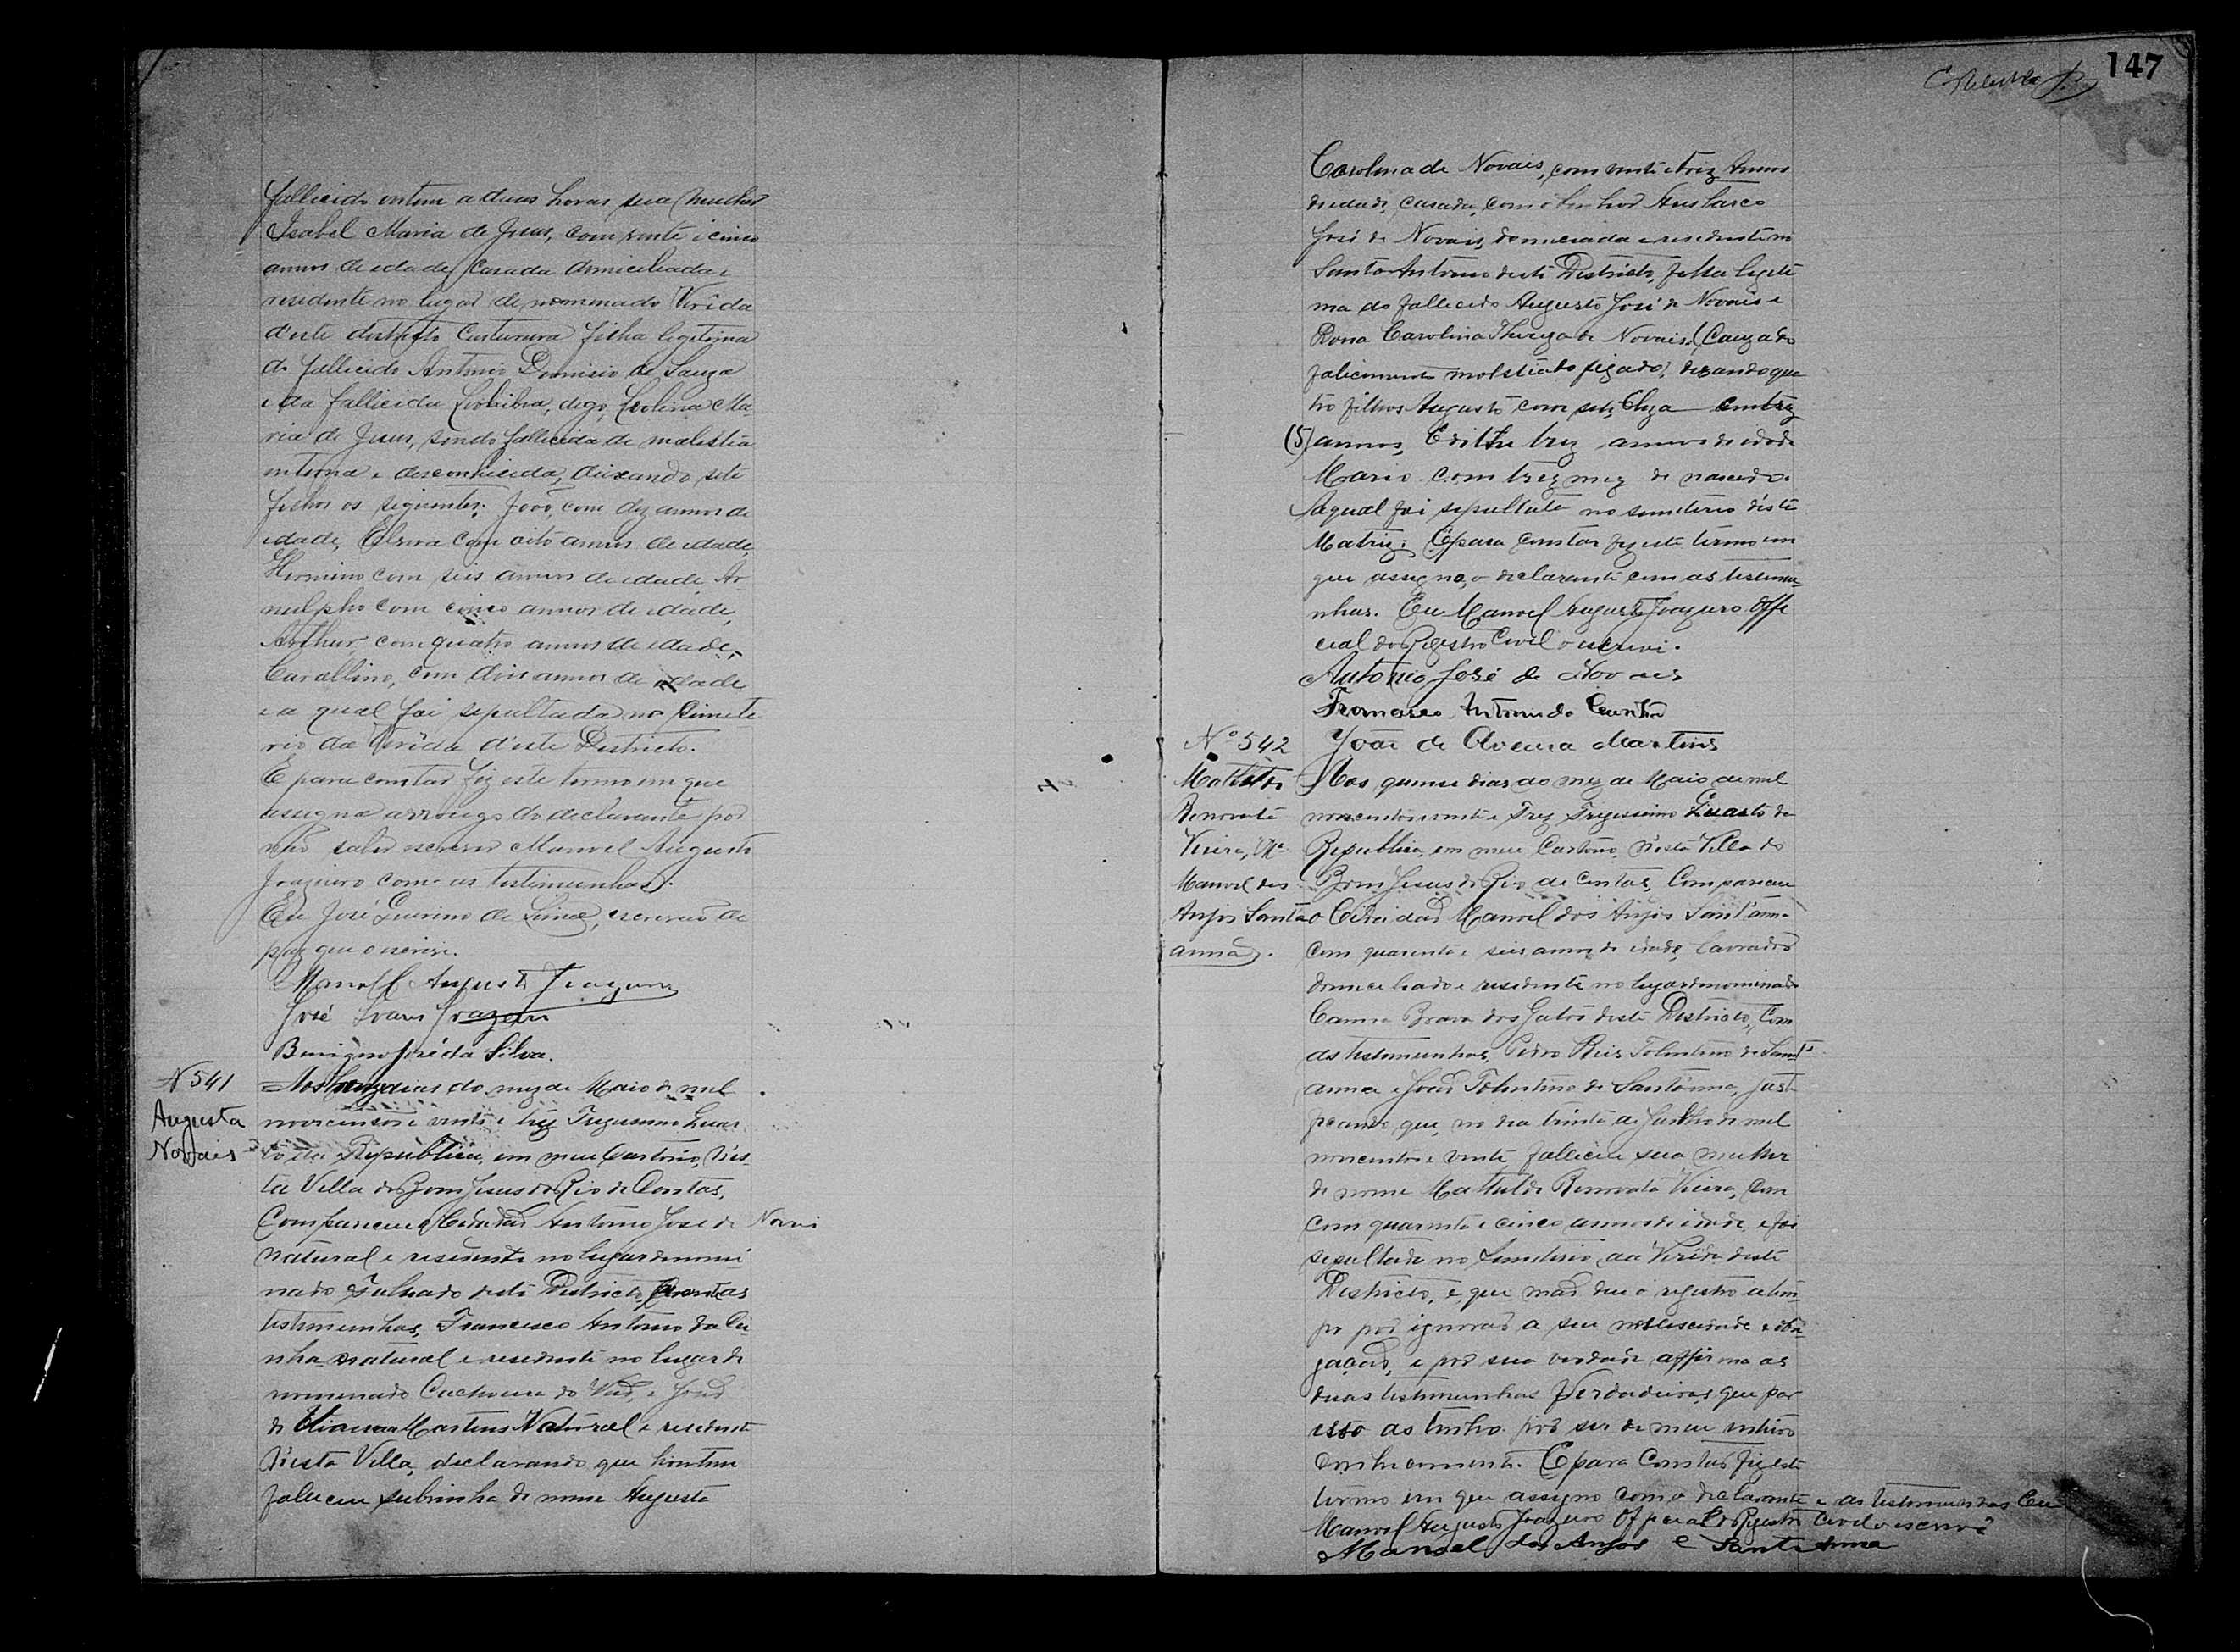 fallecido ontem a duas horas sua mulher
Isabel Maria de Jesus, com vinte e cinco
annos de edade, casada domiciliada e
residente no lugar denominado Verêda
d'este districto Custureira filha legitima
do fallecido Antonio Dionisio de Souza
e da fallicida digo, Ma-
ria de Jesus, sendo fallecida de molestia
interna e desconhicida, deixando sete
filhos os siguintes; João, com dez annos de
idade, com oito annos de edade,
Hermino com seis annos de edade, Ar-
nulpho com cinco annos de edade,
Arthur, com quatro annos de edade,
com dois annos de edade
e a qual foi sepultada no Cimete
rio da Verêda d'este Districto.
E para constar fiz este termo em que
assigna arrôugo do declarante por
não saber escrever Manoel Augusto
Joazeiro com as testimunhas.
Eu José Quirino de Lima, escrivão de
paz que o escrivi.
Manoel Augusto Joazeiro
José Joazeiro
Benigno José da Silva.
N 541
Augusta
Novais
Aos dias do mez de Maio de mil
novicensos e vinte e trez Trigessimo Quar
to da Republica, em meu Cartorio, n'es-
ta Villa do Bom Jesus do Rio de Contas,
Compareceu o Cidadão Antonio José de Novais
natural e residente no lugar denomi
nado Falhado deste Districto, perante as
testimunhas, Francisco Antonio da Cu
nha natural e residente no lugar de
nominado Cachoeira do e João
de Oliveira Martins Natural e residente
n'esta Villa, declarando que hontem
faleceu subrinha de nome Augusta
147
Carolina de Novais, com vinte e trez Annos
de edade, casada, com o Senhor
José de Novais, domiciada e residente no
Santo Antonio deste Districto, filha legiti
ma do fallecido Augusto José de Novais e
Dona Carolina Thereza de Novais. Cauza do
falicimento molestia do figado, dexando qua
tro filhos Augusto com sete, Elza com trez
(5) annos, Edithe trez annos de edade
Mario com trez mez de nascido.
A qual foi sepultáta no semiterio déste
Matriz. E para constar fiz este termo em
que assigna, o declarante com as testemu-
nhas. Eu Manoel Augusto Joazeiro Offi
cial do Registro Civil o escrivi.
Antonio José de Novais
Francisco Antonio da Cunha
João de Oliveira Martins
Nº 542
Mathilde
Renovata
Vieira, Mer
Manoel dos
Anjos Sant
anna.
Aos quinse dias do mez de Maio de mil
novecentos e vinte e Trez Trigessimo Quarto da
Republica, em meu Cartorio, n'esta Villa do
Bom Jesus do Rio de Contas, Compareceu
o Cidadão Manoel dos Anjos Sant'anna
com quarenta e seis annos de idade, Lavrador
domiciliado e residente no lugar denominado
Canna Brava dos Gatos deste Districto, Com
as testemunhas, Pedro Reis Tolentino de Sant'
anna e João Tolentino de Sant'anna, justi
ficando que, no dia trinta de Junho de mil
novecentos e vinte falleceu sua mulher
de nome Mathilde Renovata Vieira, Com
com quarenta e cinco annos de idade e foi
sepultada no Semiterio da Verêda deste
Districto, e que não deu o registro a tem-
po por ignorar a sua e obri
gação, e por sua verdade affirma as
duas testemunhas verdadeiras que por
isso as tenho por ser de meu inteiro
conhecimento. E para Constar fiz este
termo em que assigno com o declarante e as testemunhas Eu
Manoel Augusto Joazeiro Official do Registro Civil o escrivi
Manoel dos Anjos e Santanna